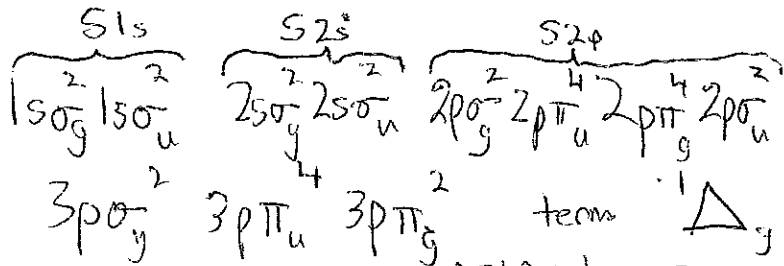 S1s S2s S2p
1sσg² 1sσu² 2sσg² 2sσu² 2pσg² 2pπu⁴ 2pπg⁴ 2pσu²
3pσg² 3pπu⁴ 3pπg² term ¹Δg